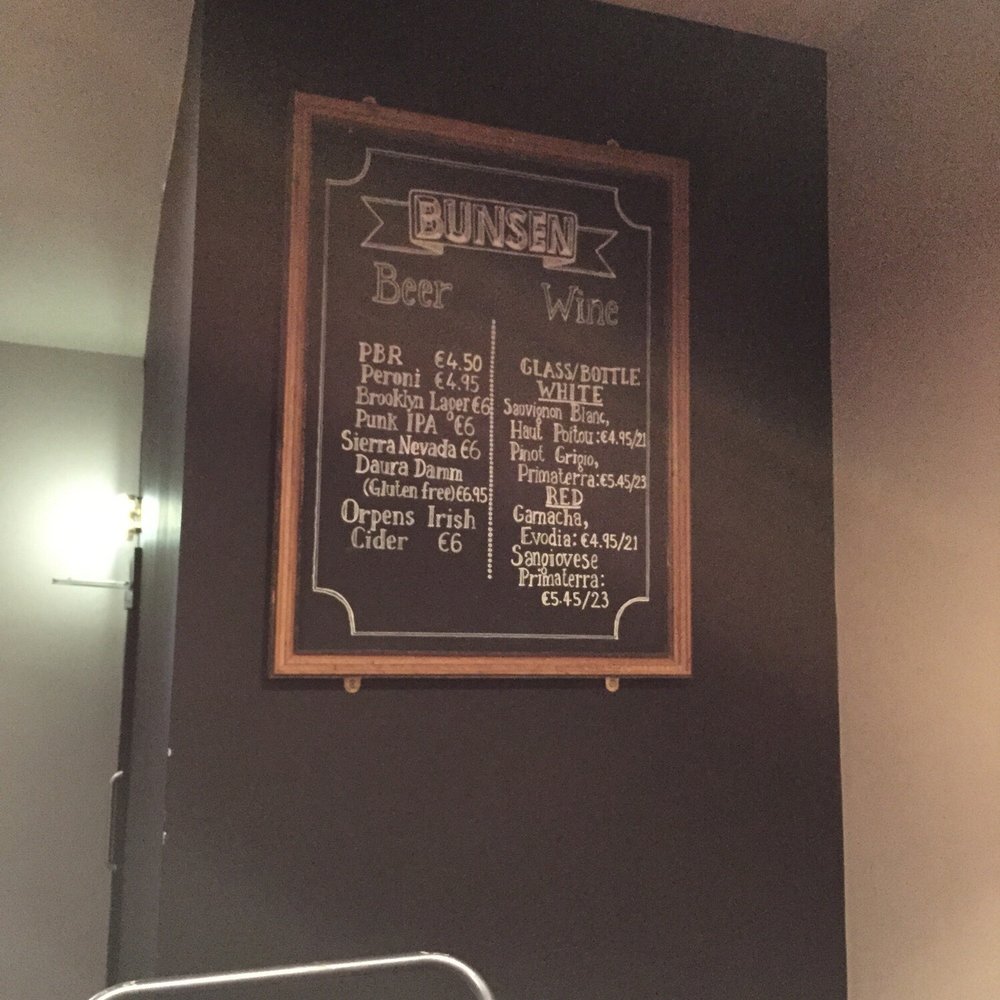 BUNSEN
Beer
PBR €4.50
Peroni €4.95
Brooklyn Lager €6
Punk IPA €6
Sierra Nevada €6
Daura Damm
(Gluten free) €6.95
Orpens Irish
Cider €6
Wine
GLASS/BOTTLE
WHITE
Sauvignon Blanc,
Haut Poitou: €4.95/21
Pinot Grigio,
Primaterra: €5.45/23
RED
Garnacha,
Evodia: €4.95/21
Sangiovese
Primaterra:
€5.45/23